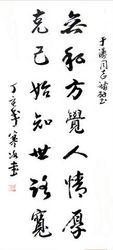 于濤同志補壁
無私方覺人情厚
克己始知世路寬
丁亥年